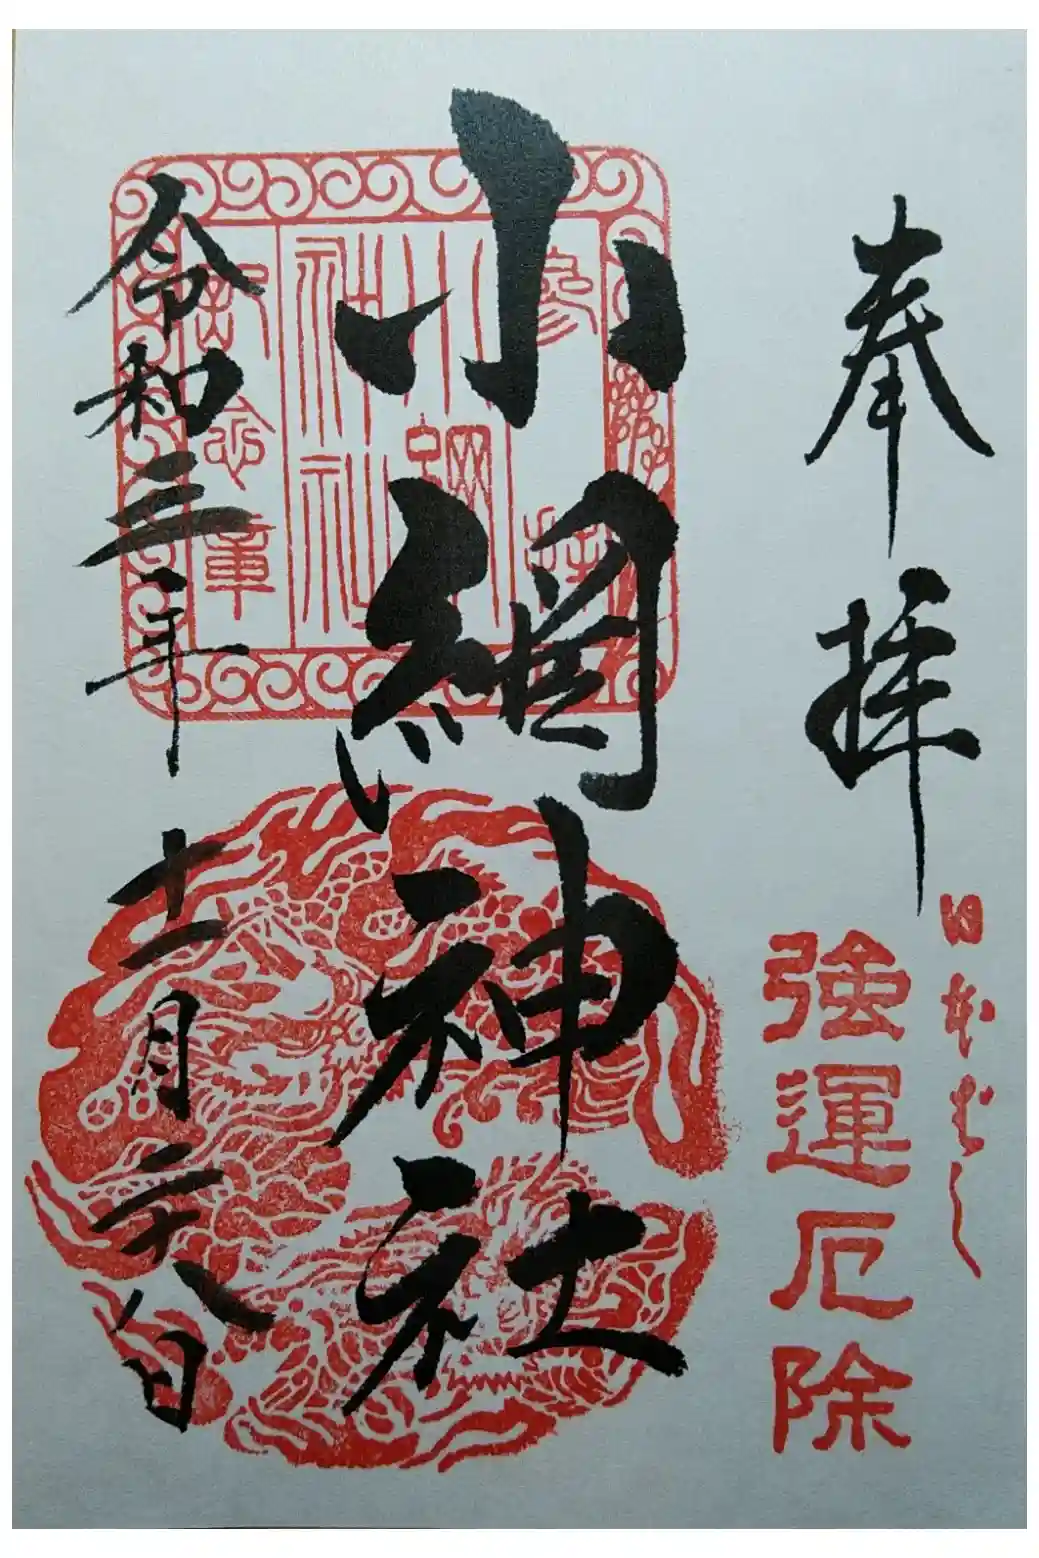 奉拝
日本ばし
強運厄除
小網神社
参拝
小網神社
記念章
令和三年十一月二十八日